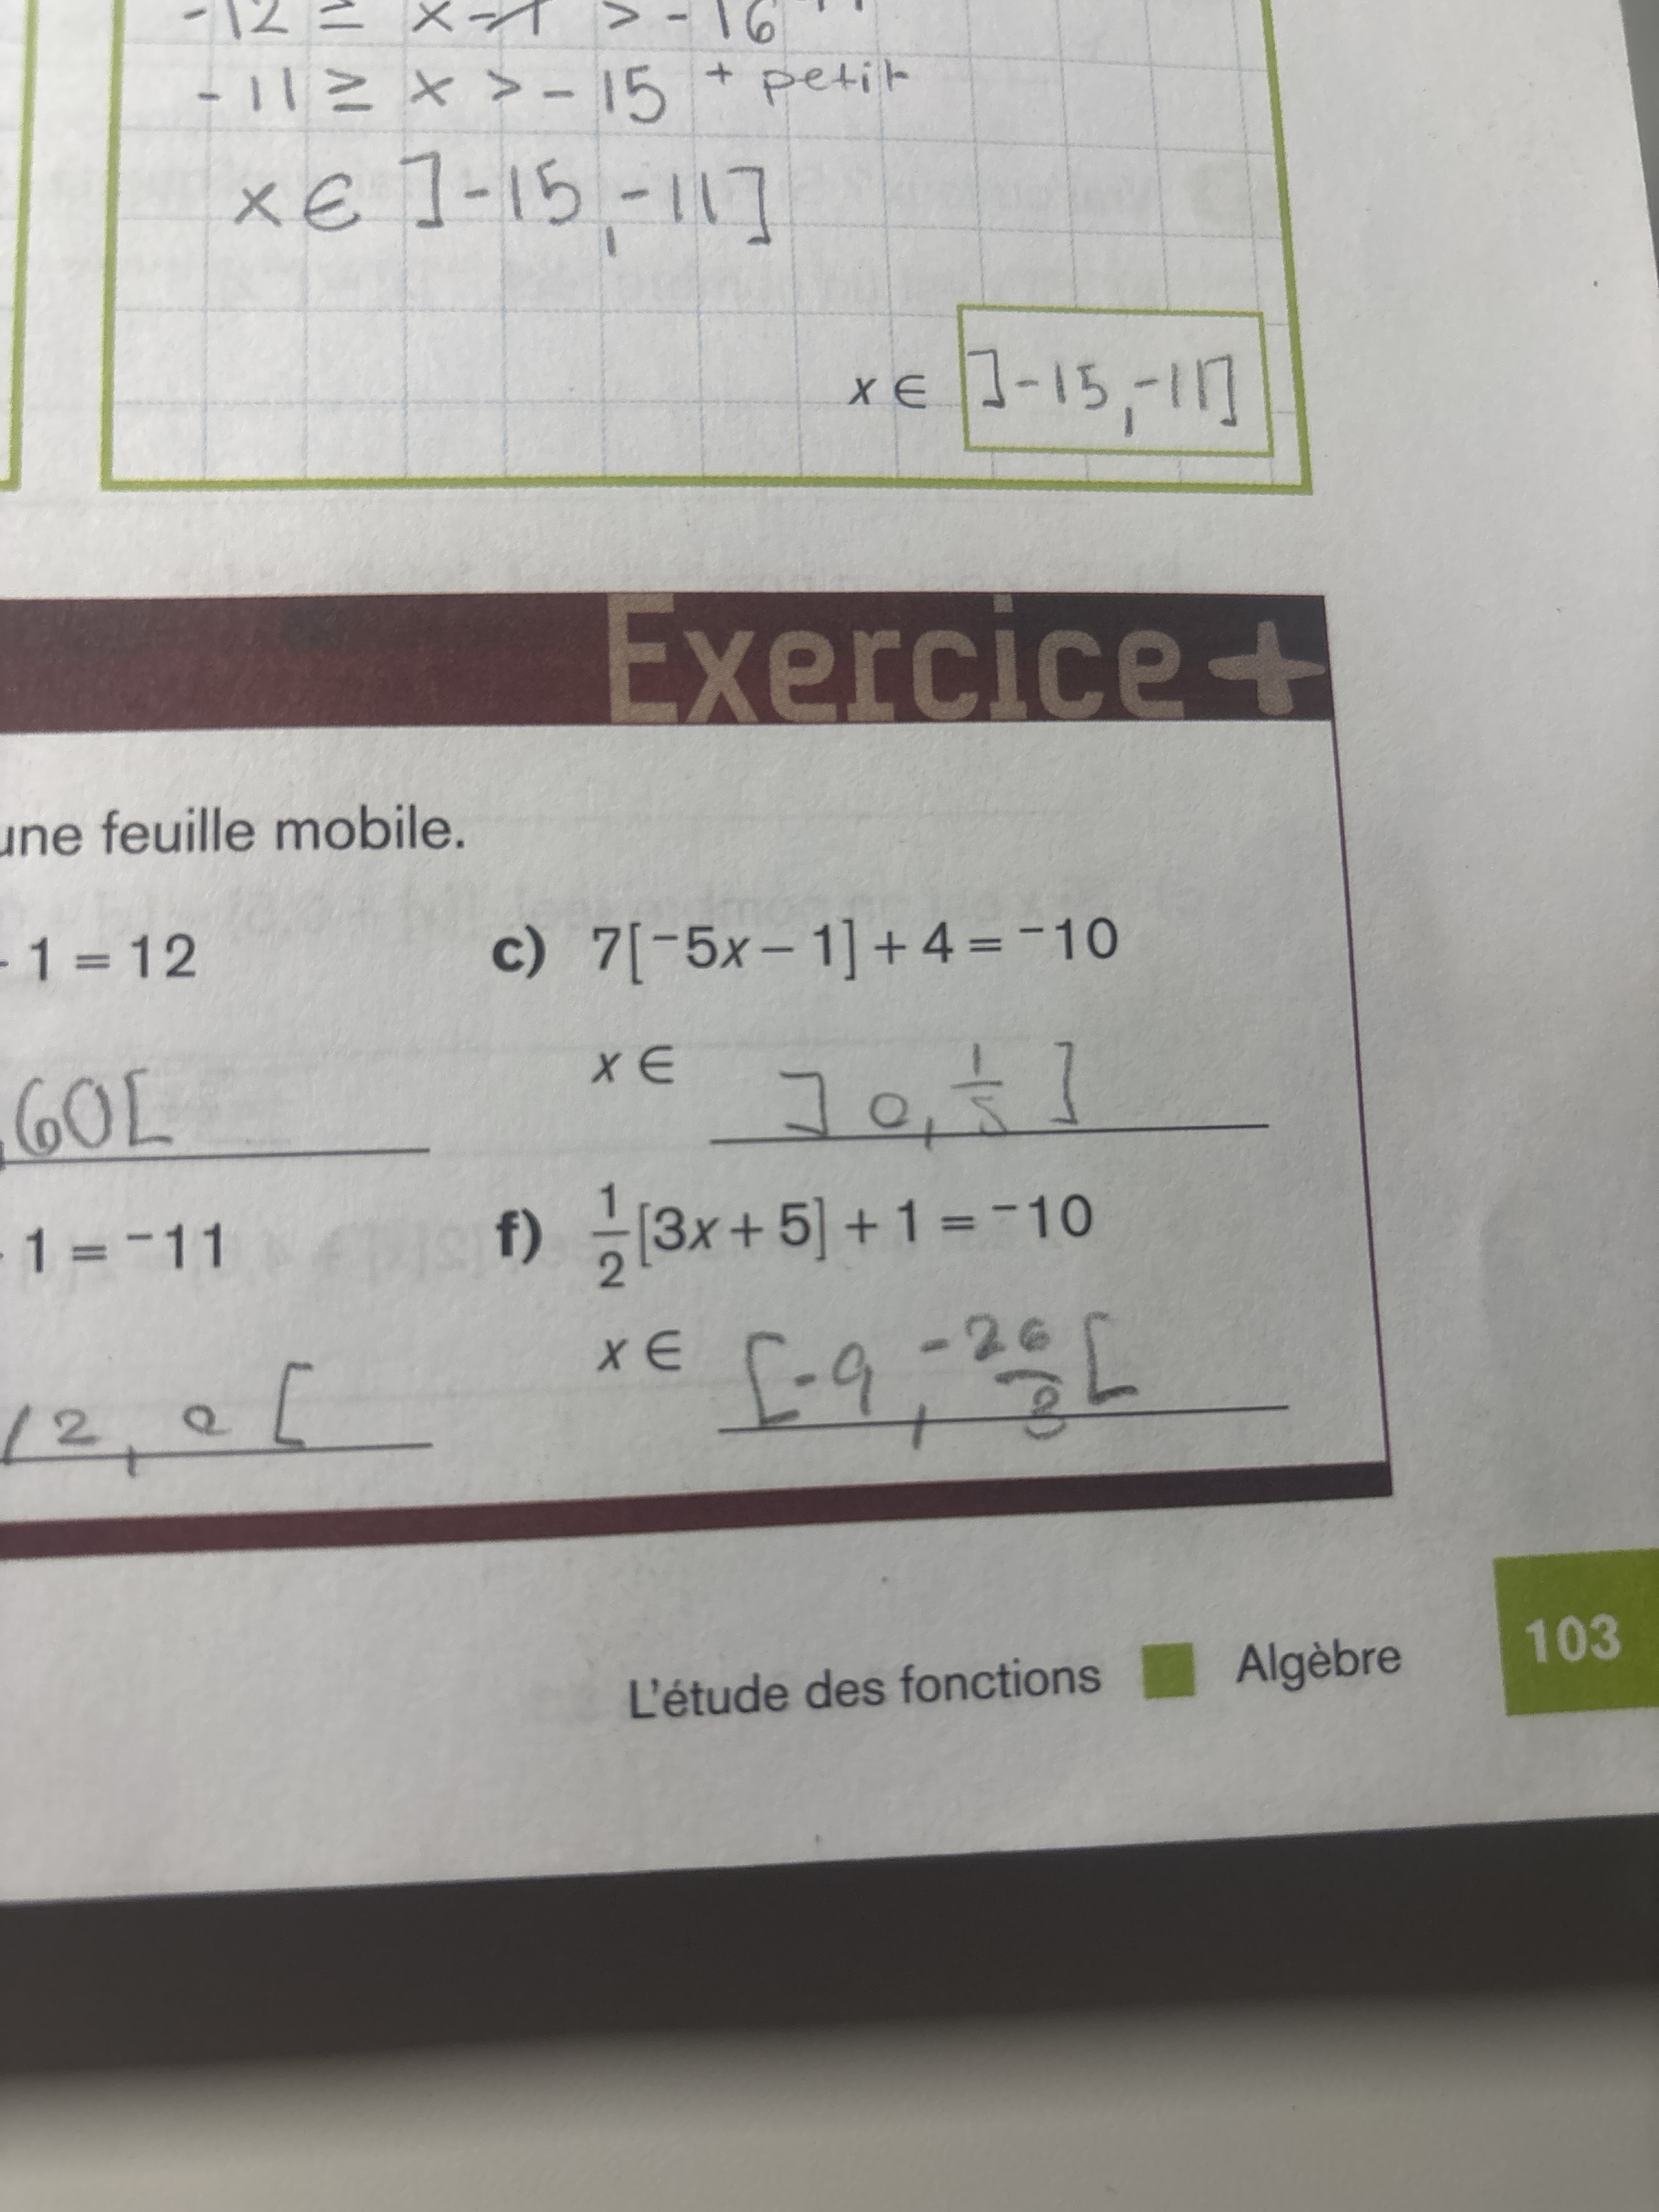 -12 ≥ x-1 > -16
-11 ≥ x > -15 + petit
x ∈ ]-15,-11]
x ∈ ]-15,-11]
Exercice +
une feuille mobile.
1 = 12
c) 7[⁻5x – 1] + 4 = ⁻10
60[
x ∈ ]0, 1/5]
1 = ⁻11
f) 1/2[3x + 5] + 1 = ⁻10
12, 0[
x ∈ [-9, -26/3[
L'étude des fonctions Algèbre 103